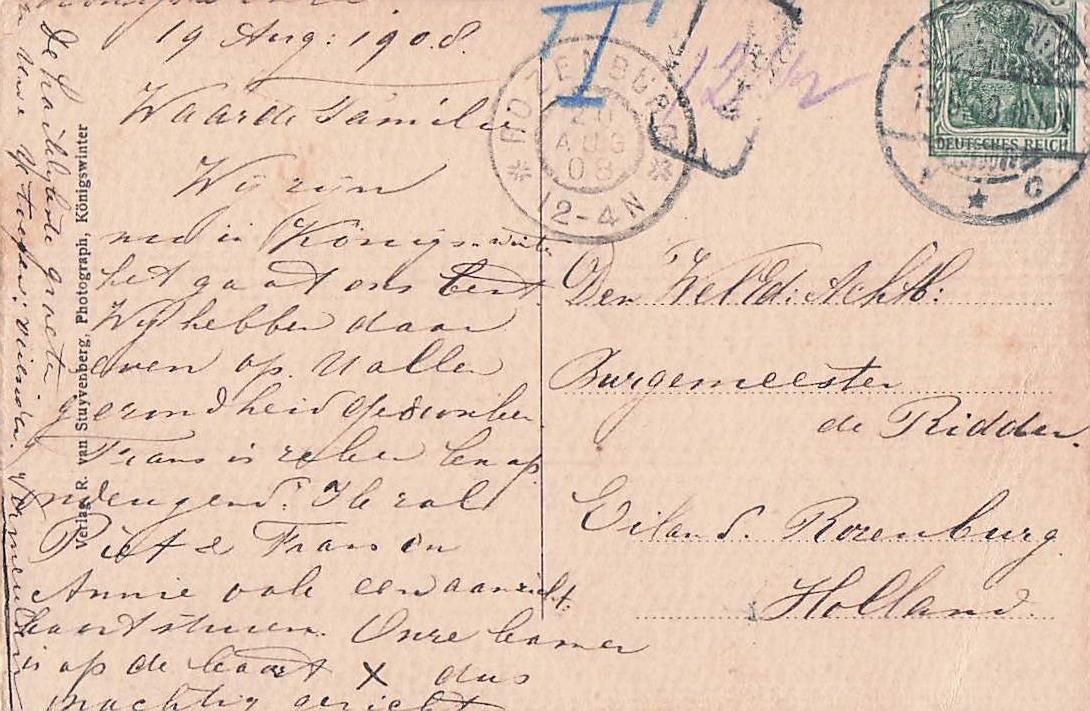 19 Aug: 1908.
Waarde Familie
Wij zijn
nu in Königswinter
het gaat ons best
Wij hebben daar
even op U aller
gezondheid gedronken
Frans is zeker
Ik zal
Piet & Frans en
Annie ook een aanzicht
kaart sturen. Onze kamer
is op de kaart X dus
prachtig gezicht
De hartelijkste groeten
Verlag R. van Stuyvenberg, Photograph, Königswinter
ROZENBURG
20
AUG
08
12-4N
T
DEUTSCHES REICH
Den WelEd: Achtb:
Burgemeester
de Ridder.
Eiland. Rozenburg.
Holland.